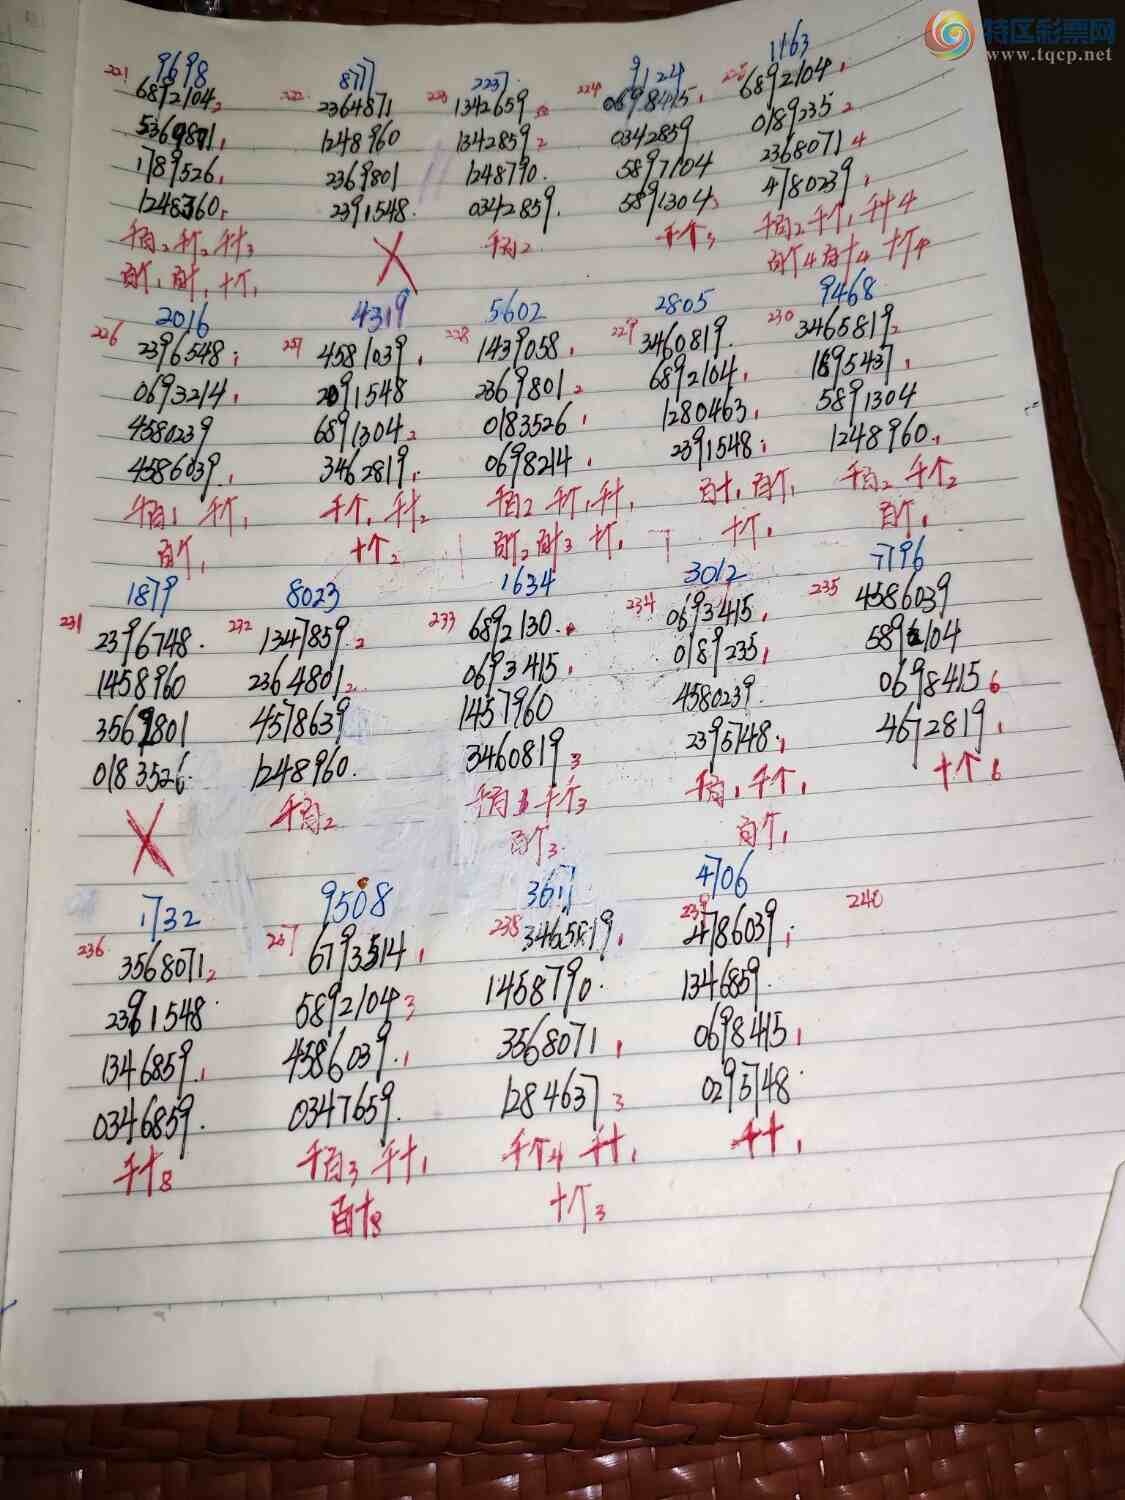 特区彩票网
www.tqcp.net
9698 8777 2237 9124 1163
221 6892104 2 222 2364871 223 1342659 224 0698415 1 225 6892104 1
5369871 1 1248960 1342859 2 0342859 0189235 2
1789526 1 2369801 1248790 5897104 2368071 4
1248360 2391548 0342859 5891304 3 4780239 1
千百2 千个2 千十3 X 千百2 千个3 千百2 千个1 千十4
百个1 百十1 十个1 百个4 百十4 十个4
2016 4319 5602 2805 9468
226 2396548 1 227 4581039 1 228 1439058 1 229 3460819 230 3465819 2
0693214 1 2091548 2369801 2 6892104 1 1895437 1
4580239 6891304 2 0183526 1 1280463 1 5891304
4586039 1 3462819 1 0698214 1 2391548 1 1248960 1
千百1 千个1 千个1 千十2 千百2 千个1 千十1 百十1 百个1 千百2 千个2
百个1 十个2 百个2 百十3 十个1 十个1 百个1
1879 8023 1634 3012 7796
231 2396748 232 1347859 2 233 6892130 234 0693415 1 235 4586039
1458960 2364801 2 0693415 1 0189235 1 5896104
3569801 4578639 1457960 4580239 0698415 6
0183526 1248960 3460819 3 2395748 1 4672819 1
X 千百2 千百 千个3 千百1 千个1 十个6
百个3 百个1
1732 9508 3617 4706
236 3568071 2 237 6793514 1 238 3465819 1 239 4786039 1 240
2391548 5892104 3 1458790 1346859
1346859 1 4586039 1 3568071 1 0698415 1
0346859 0347659 1284637 3 0295748
千十8 千百3 千十1 千个4 千十1 千十1
百十8 十个3